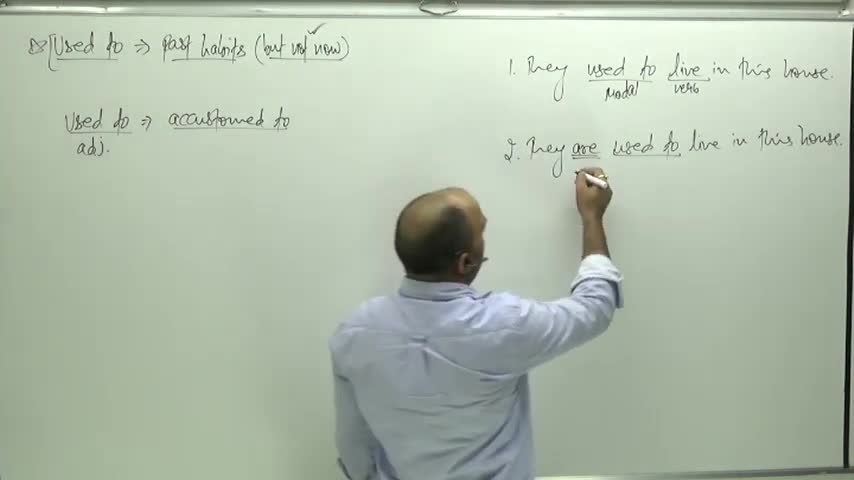 Used to ⇒ past habits (but not now)
used to ⇒ accustomed to
adj.
1. They used to live in this house.
modal verb
2. They are used to live in this house.